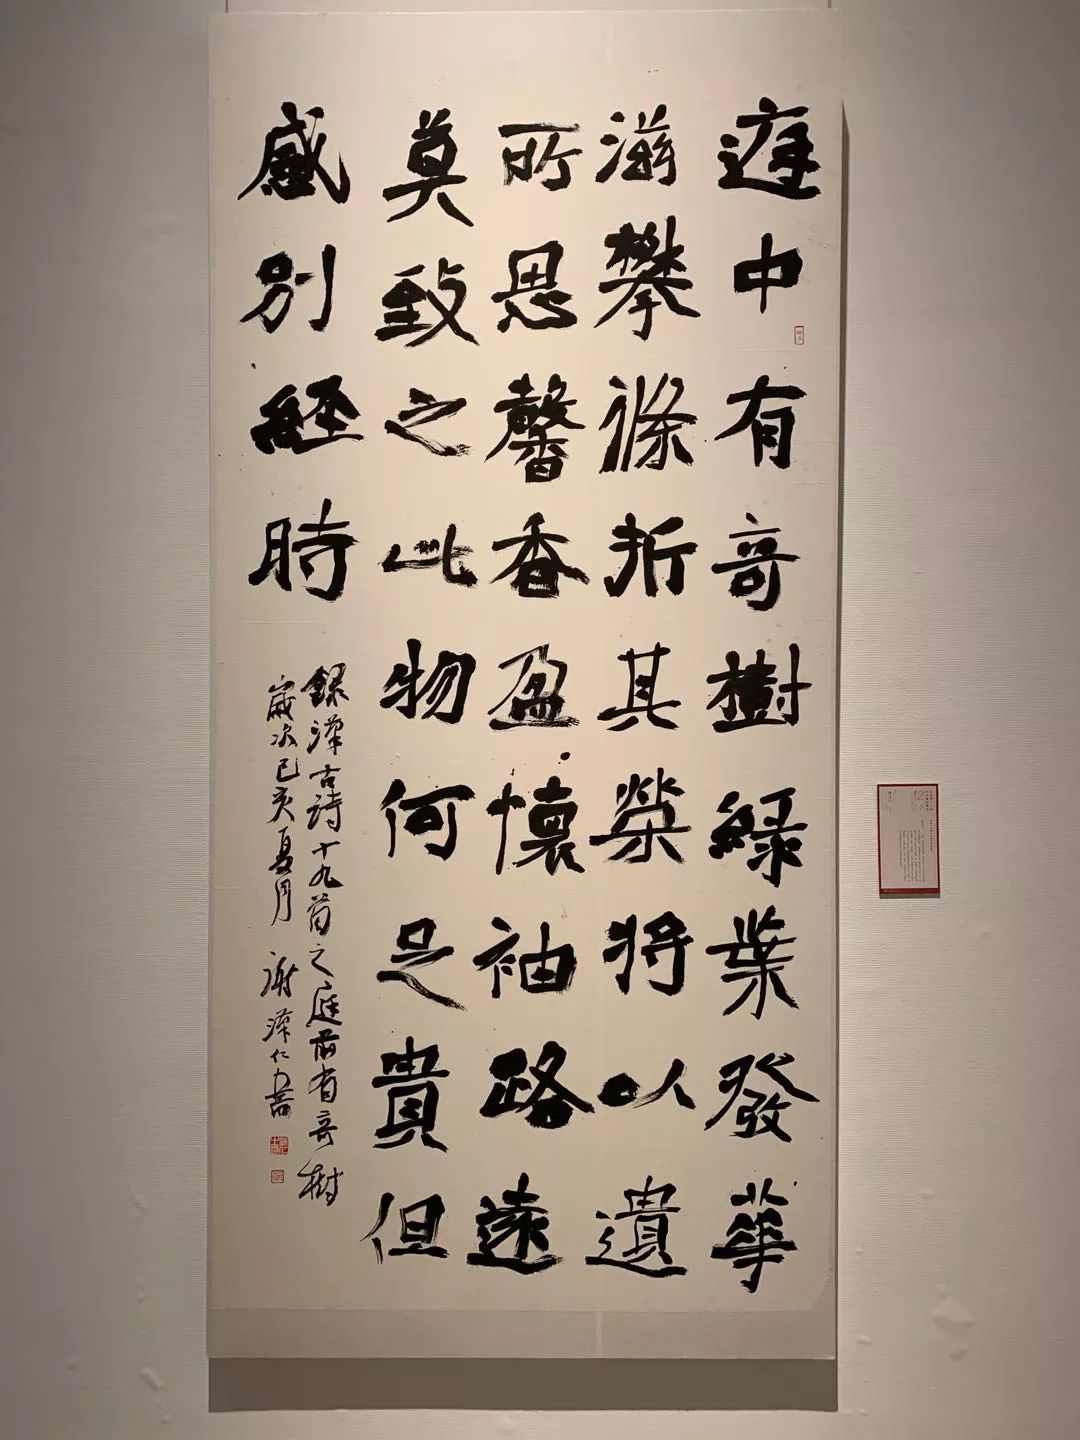 庭中有奇樹綠葉發華
滋攀條折其榮將以遺
所思馨香盈懷袖路遠
莫致之此物何足貴但
感別經時
錄漢古詩十九首之庭前有奇樹
歲次己亥夏月 謝澤仁書